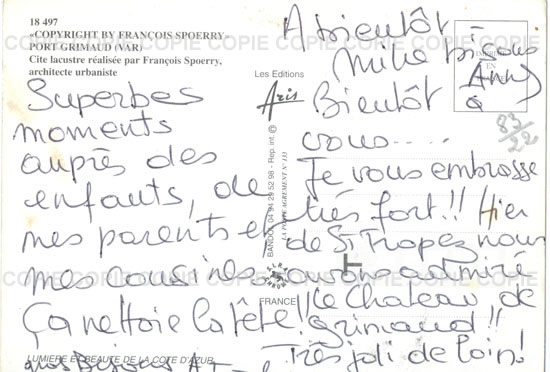 18 497
"COPYRIGHT BY FRANÇOIS SPOERRY"
PORT GRIMAUD (VAR)
Cite lacustre réalisée par François Spoerry,
architecte urbaniste
Superbes
moments
auprès des
enfants, de
mes parents et
mes cousines
Ça nettoie la tête!!
LUMIERE ET BEAUTE DE LA COTE D'AZUR
nos Bisous A
Les Editions
Aris
BANDOL 04 94 29 52 98 - Rep. int. ©
LA POSTE AGREMENT N° 133
FRANCE
A bientôt
mille bisous
Anny
Bientôt à
vous.....
Je vous embrasse
très fort!! Hier
de St Tropez nous
avons admiré
le Chateau de
Grimaud!!
Très joli de loin!
83/22
COPIE COPIE COPIE COPIE COPIE COPIE